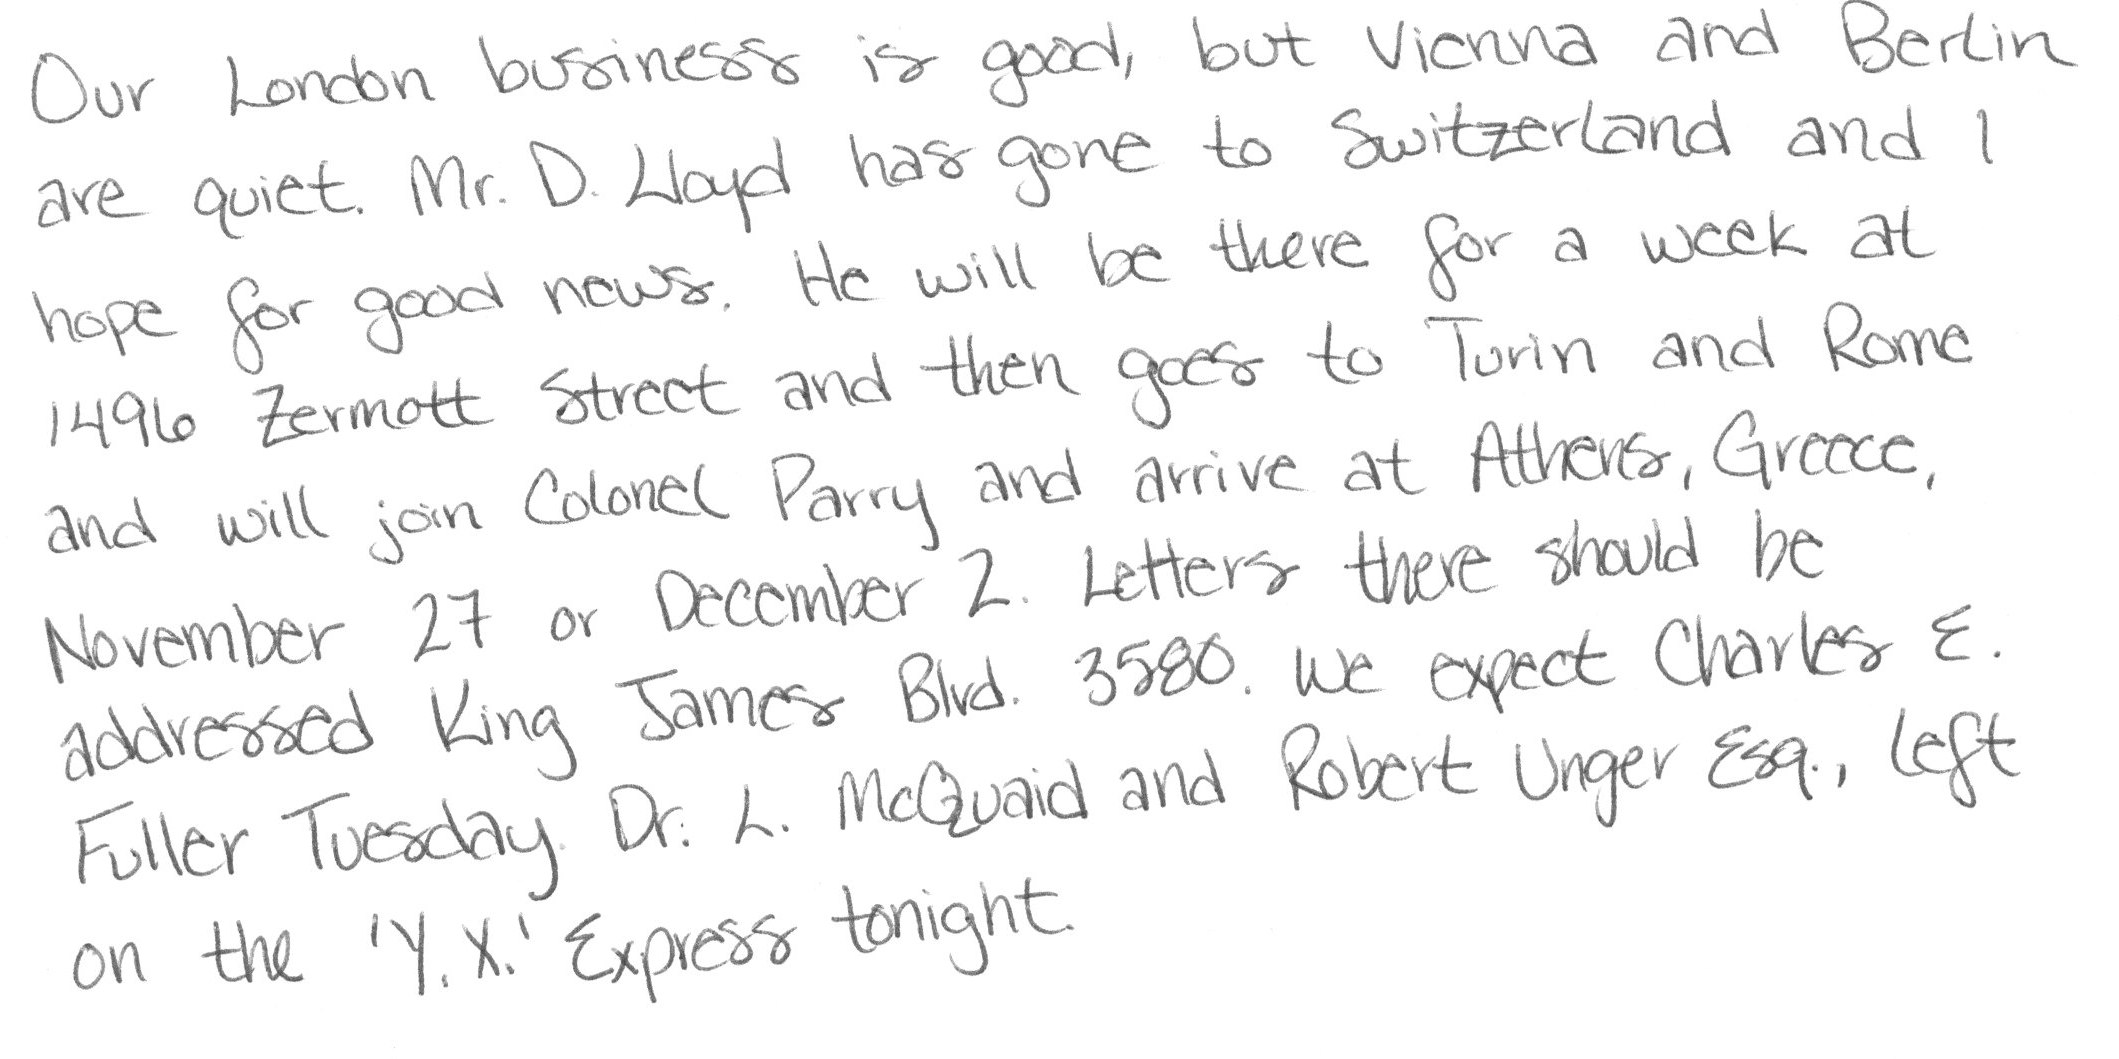 Our London business is good, but Vienna and Berlin
are quiet. Mr. D. Lloyd has gone to Switzerland and I
hope for good news. He will be there for a week at
1496 Zermott Street and then goes to Turin and Rome
and will join Colonel Parry and arrive at Athens, Greece,
November 27 or December 2. Letters there should be
addressed King James Blvd. 3580. We expect Charles E.
Fuller Tuesday. Dr. L. McQuaid and Robert Unger Esq., left
on the 'Y. X.' Express tonight.